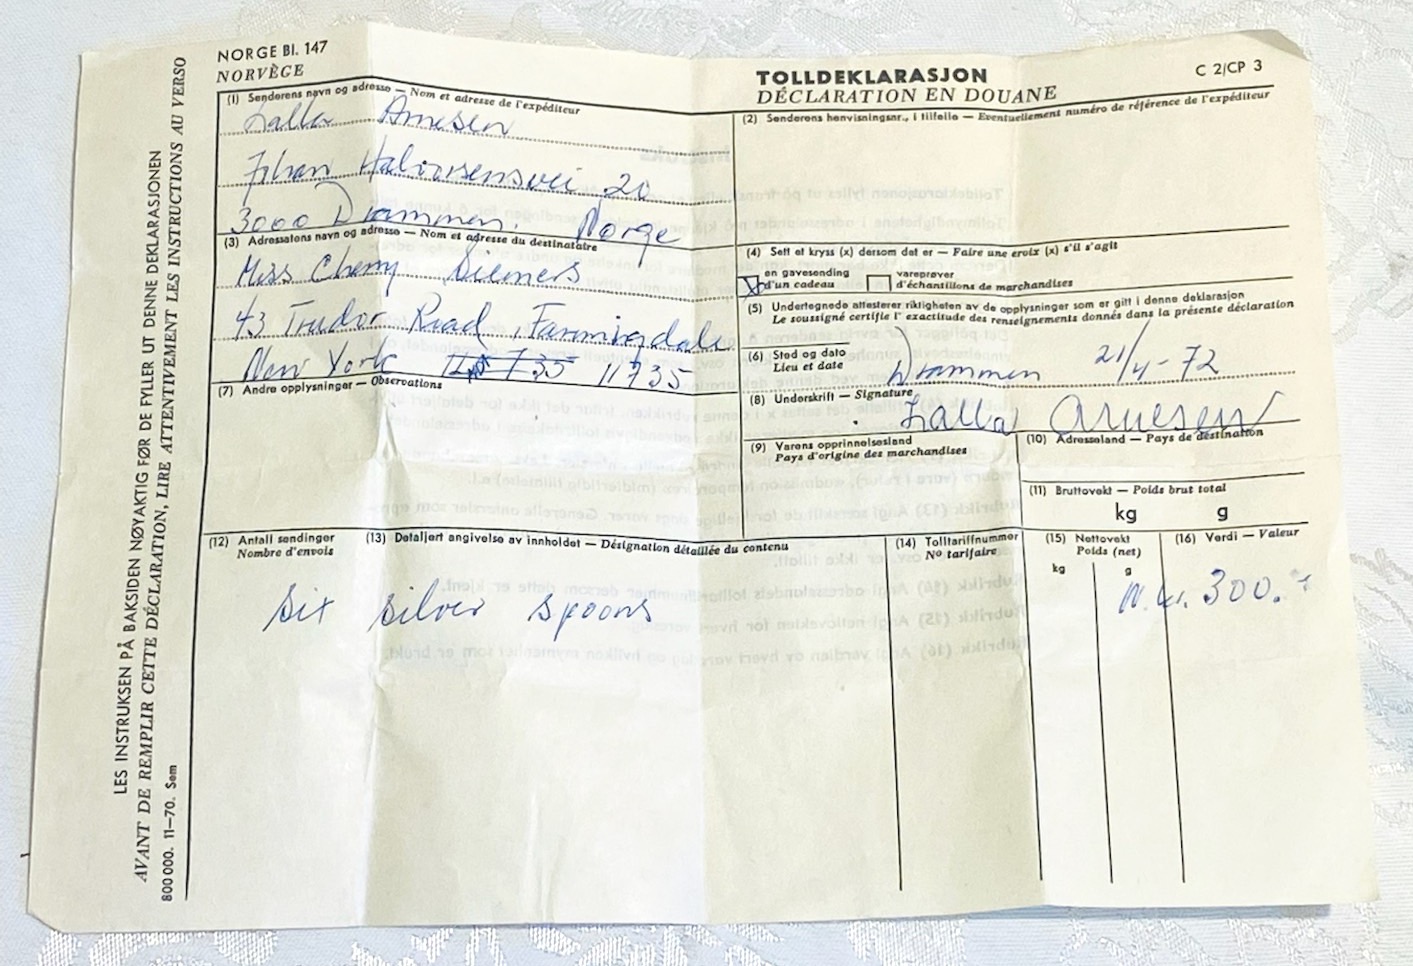 NORGE Bl. 147
NORVÈGE
TOLLDEKLARASJON
DÉCLARATION EN DOUANE
C 2/CP 3
(1) Senderens navn og adresse — Nom et adresse de l'expéditeur
Lalla Arnesen
Johan Halvorsensvei 20
3000 Drammen. Norge
(2) Senderens henvisningsnr., i tilfelle — Eventuellement numéro de référence de l'expéditeur
(3) Adressatens navn og adresse — Nom et adresse du destinataire
Miss Cherry Siemers
43 Tudor Road, Farmingdale
New York 11735
(4) Sett et kryss (x) dersom det er — Faire une croix (x) s'il s'agit
X en gavesending
d'un cadeau
vareprøver
d'échantillons de marchandises
(5) Undertegnede attesterer riktigheten av de opplysninger som er gitt i denne deklarasjon
Le soussigné certifie l'exactitude des renseignements donnés dans la présente déclaration
(6) Sted og dato
Lieu et date
Drammen 21/4-72
(7) Andre opplysninger — Observations
(8) Underskrift — Signature
Lalla Arnesen
(9) Varens opprinnelsesland
Pays d'origine des marchandises
(10) Adresseland — Pays de destination
(11) Bruttovekt — Poids brut total
kg g
(12) Antall sendinger
Nombre d'envois
(13) Detaljert angivelse av innholdet — Désignation détaillée du contenu
(14) Tolltariffnummer
No tarifaire
(15) Nettovekt
Poids (net)
kg g
(16) Verdi — Valeur
Six silver spoons
N.kr. 300.-
LES INSTRUKSEN PÅ BAKSIDEN NØYAKTIG FØR DE FYLLER UT DENNE DEKLARASJONEN
AVANT DE REMPLIR CETTE DÉCLARATION, LIRE ATTENTIVEMENT LES INSTRUCTIONS AU VERSO
800 000. 11—70. Sem